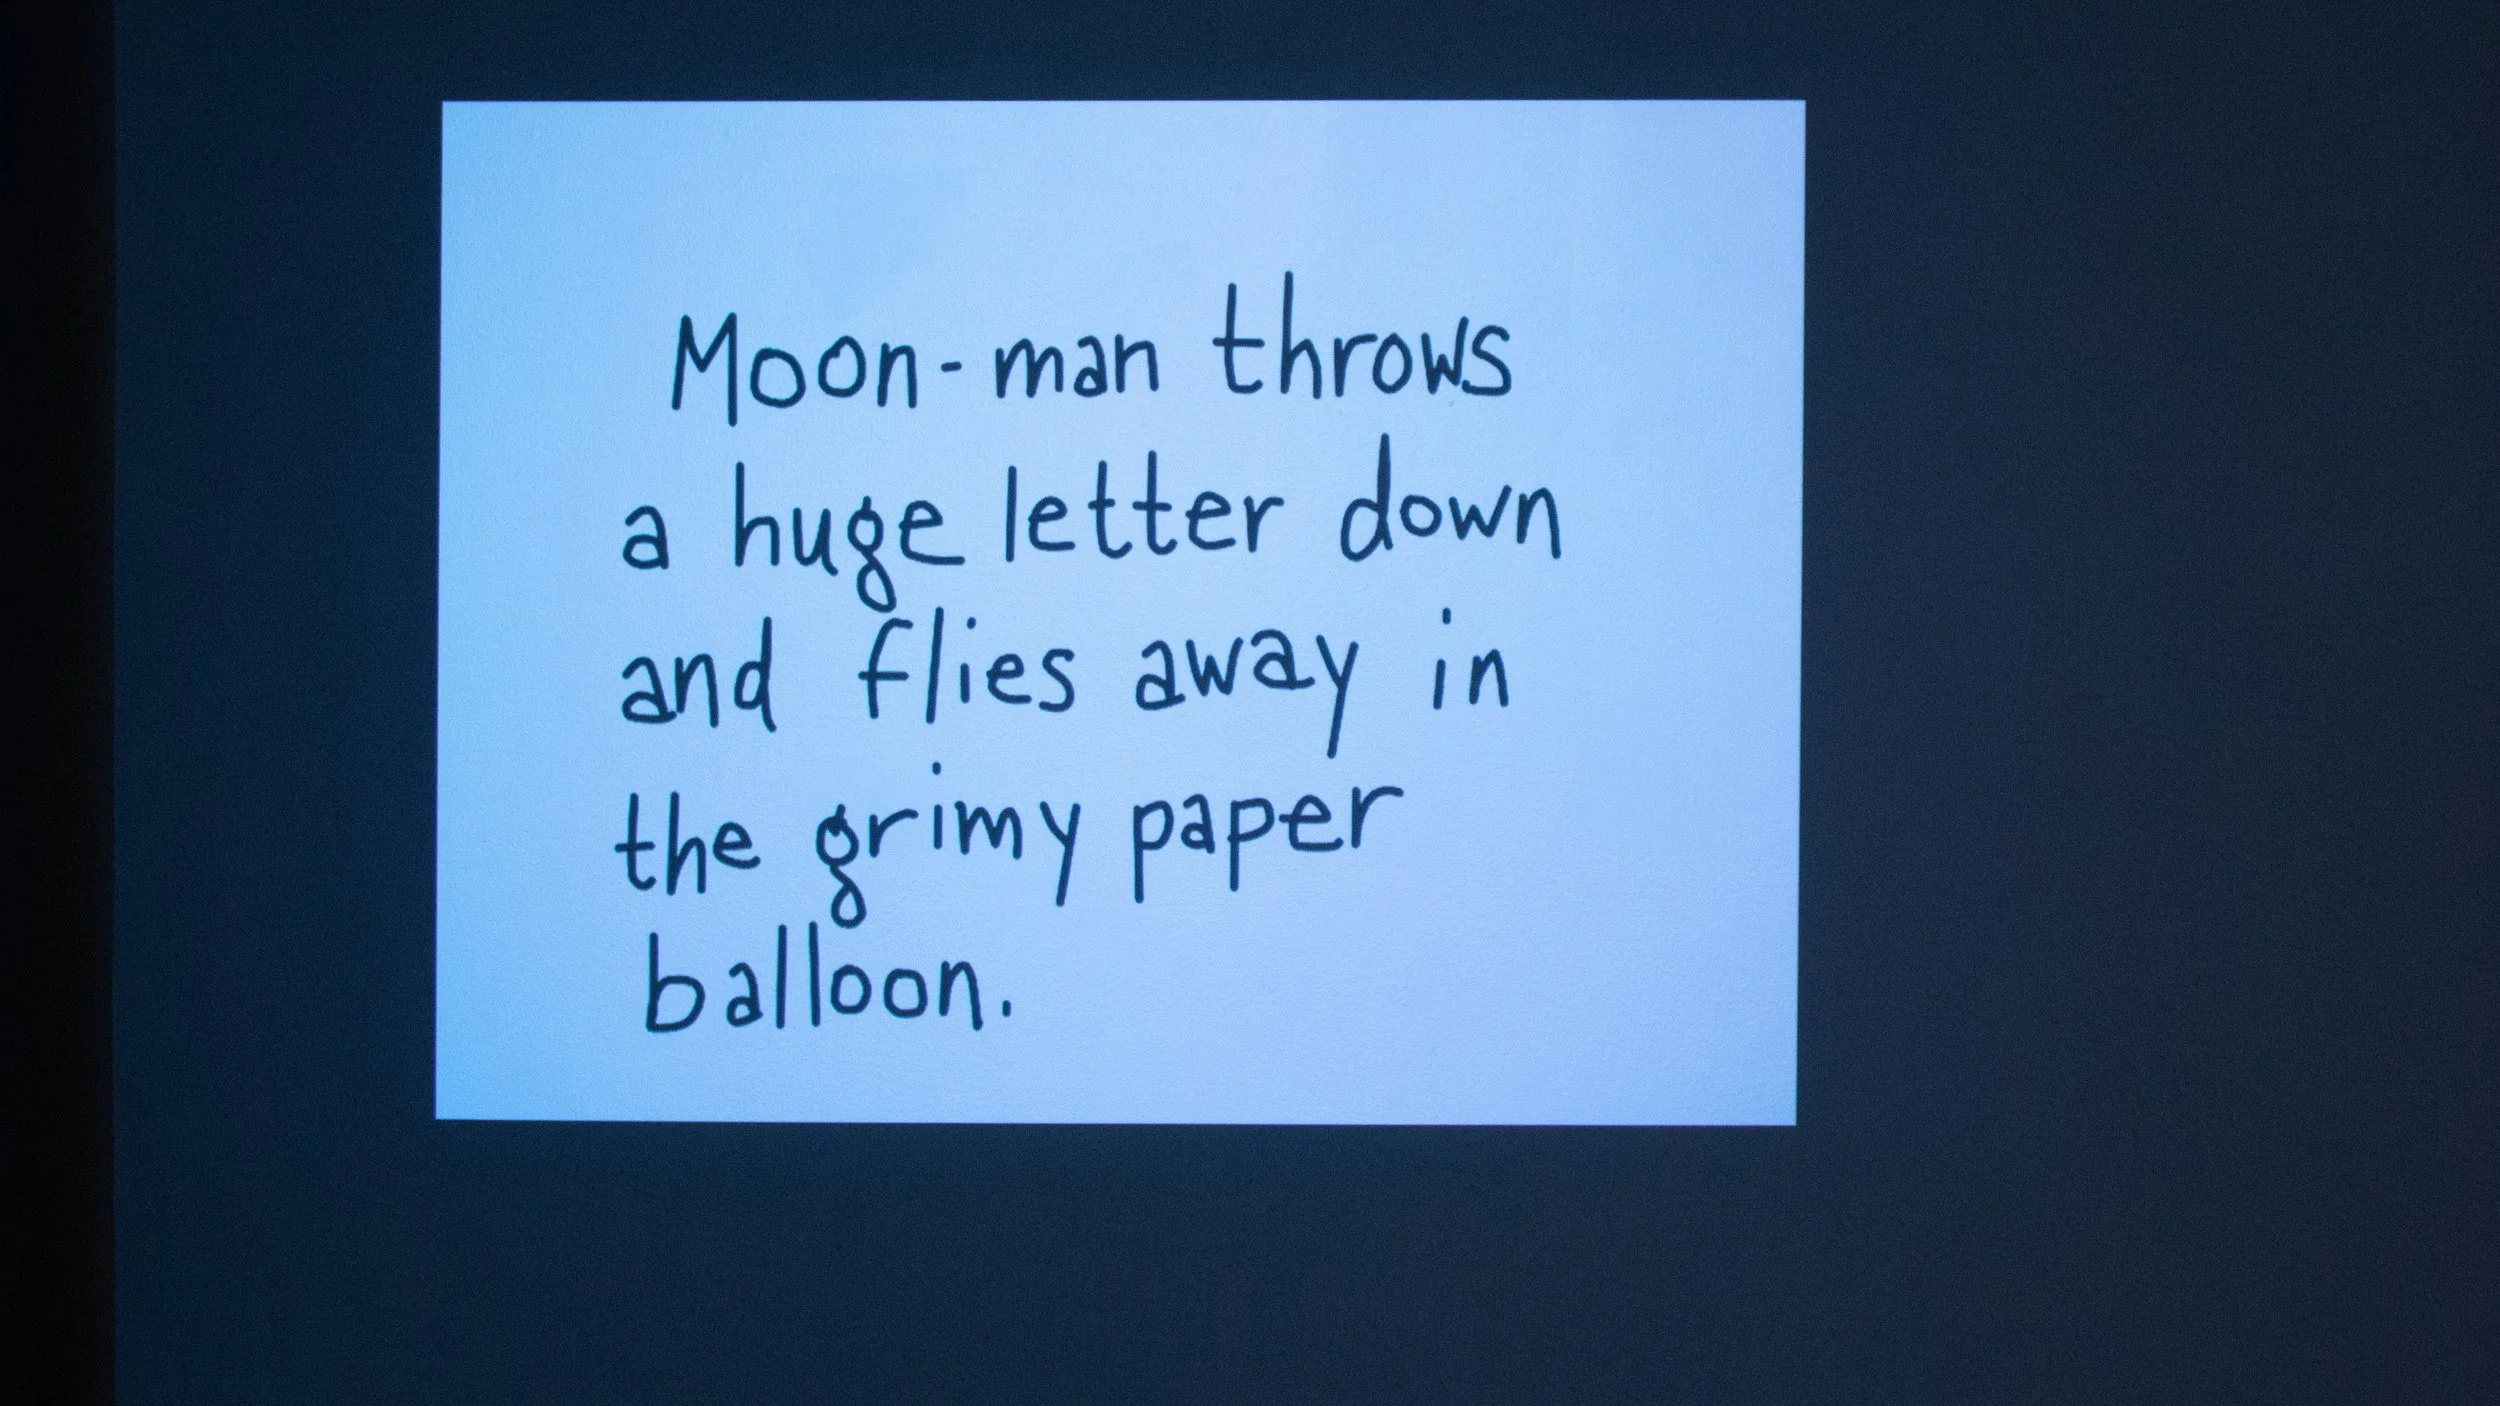 Moon-man throws
a huge letter down
and flies away in
the grimy paper
balloon.